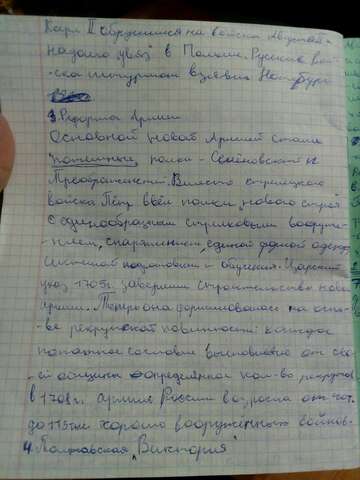 Карл II обрушился на войска Августа и
надолго увяз в Польше. Русские вой-
-ска штурмом взяли Нотбург
3. Реформа Армии
Основной новой Армией стали
потешные полки - Семёновский и
Преображенский. Вместо стрелецкого
войска Пётр ввёл полки нового строя
с единообразным стрелковым вооруже-
-нием, снаряжением, единой формой одежды,
системой подготовки и обучения. Царский
указ 1705г. завершил строительство новой
армии. Теперь она формировалась на осно-
-ве рекрутской повинности: каждое
податное сословие выставляло от сво-
-ей общины определённое кол-во рекрутов
в 1708г. армия России возросла от 40т.
до 113 тыс хорошо вооружённых воинов.
4. Полтавская "Виктория"